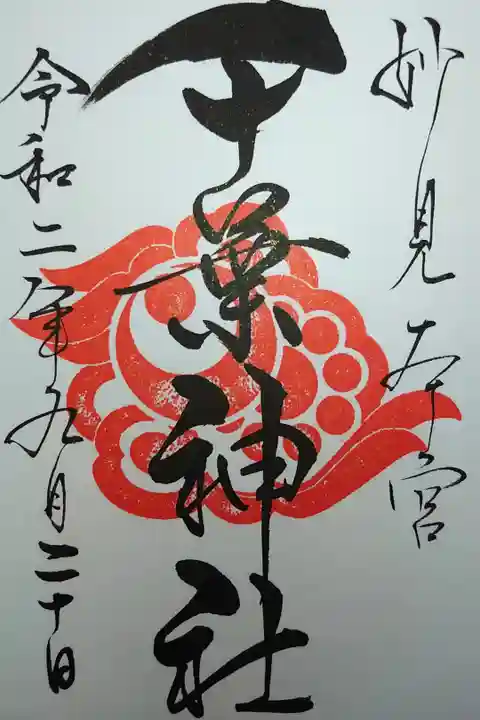 妙見本宮
千葉神社
令和二年九月二十日